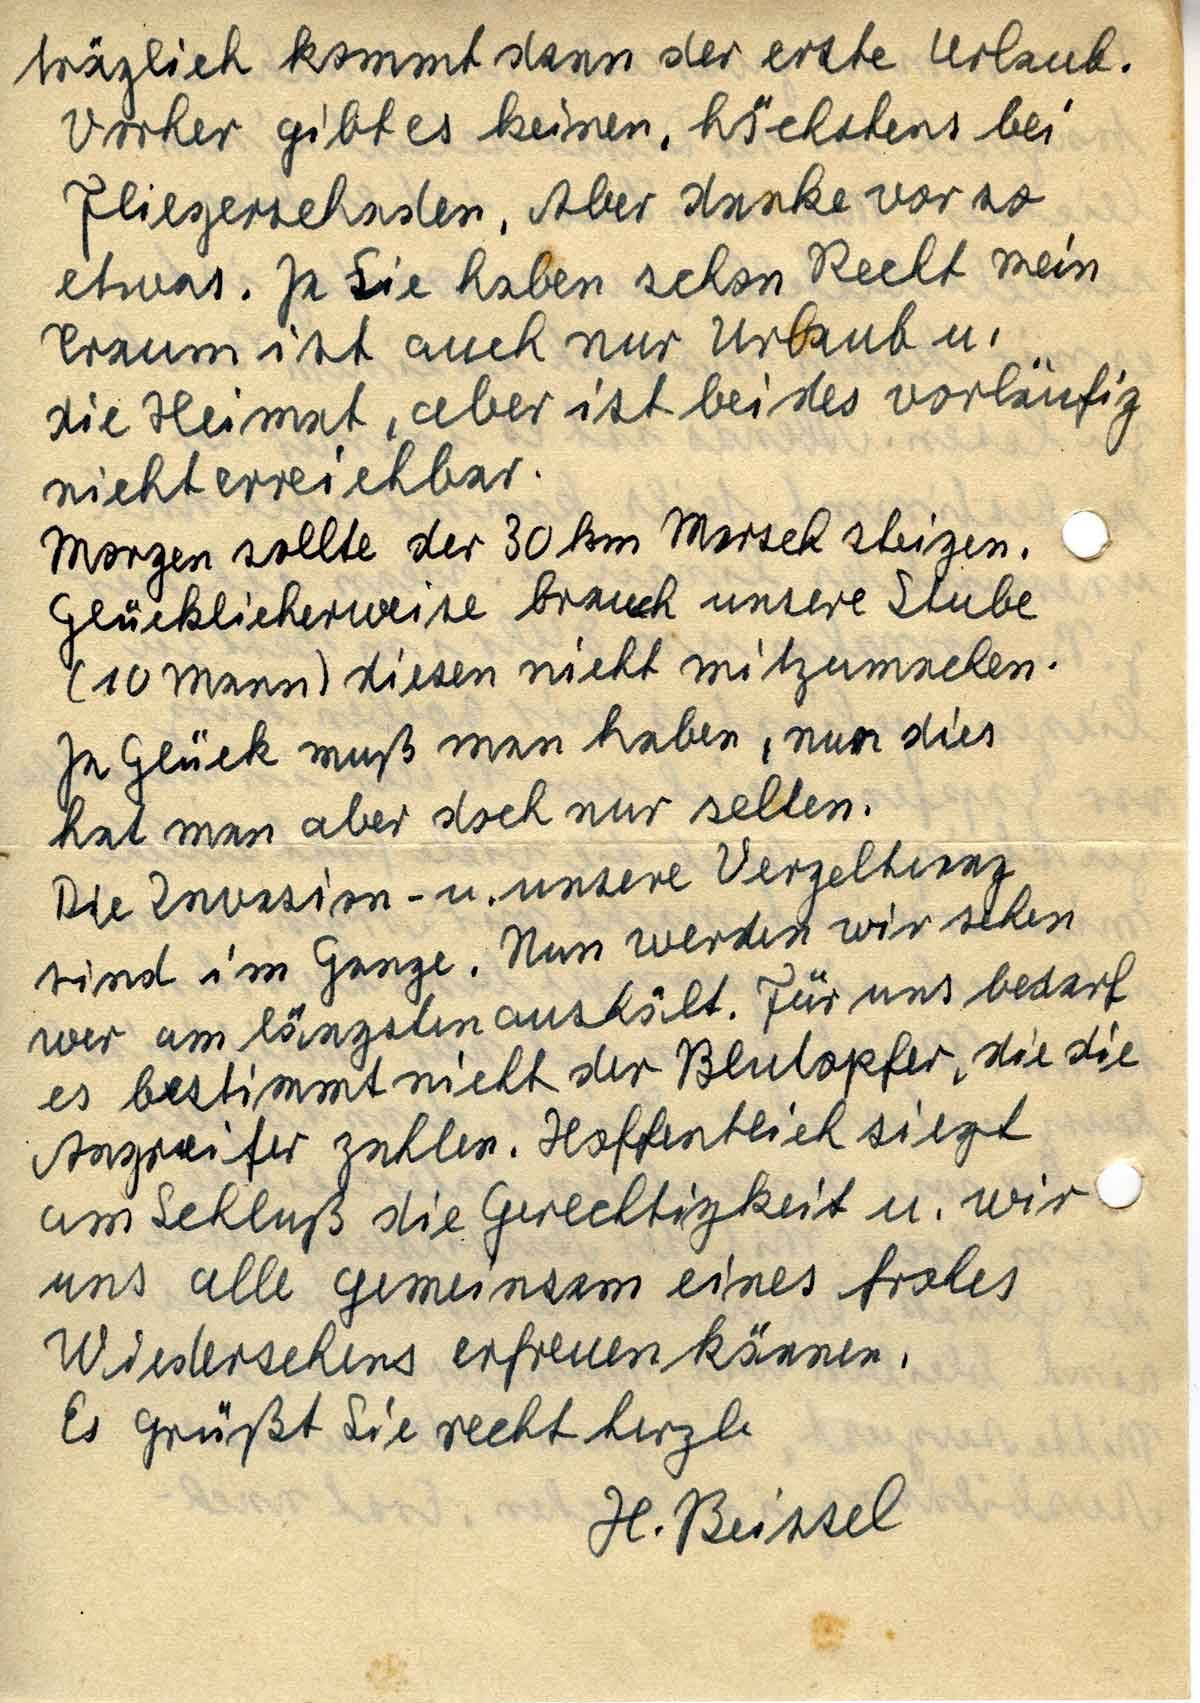 träglich kommt dann der erste Urlaub.
Vorher gibt es keinen, höchstens bei
Fliegerschaden. Aber danke vor so
etwas. Ja Sie haben schon Recht mein
Traum ist auch nur Urlaub u.
die Heimat, aber ist beides vorläufig
nicht erreichbar.
Morgen sollte der 30 km Marsch steigen.
Glücklicherweise brauch unsere Stube
(10 Mann) diesen nicht mitzumachen.
Ja Glück muß man haben, nur dies
hat man aber doch nur selten.
Die Invasion - u. unsere Vergeltung
sind im Gange. Nun werden wir sehen
wer am längsten aushält. Für uns bedarf
es bestimmt nicht der Blutopfer, die die
Angreifer zahlen. Hoffentlich siegt
am Schluß die Gerechtigkeit u. wir
uns alle gemeinsam eines frohes
Wiedersehens erfreuen können.
Es grüßt Sie recht herzl.
H. Beissel